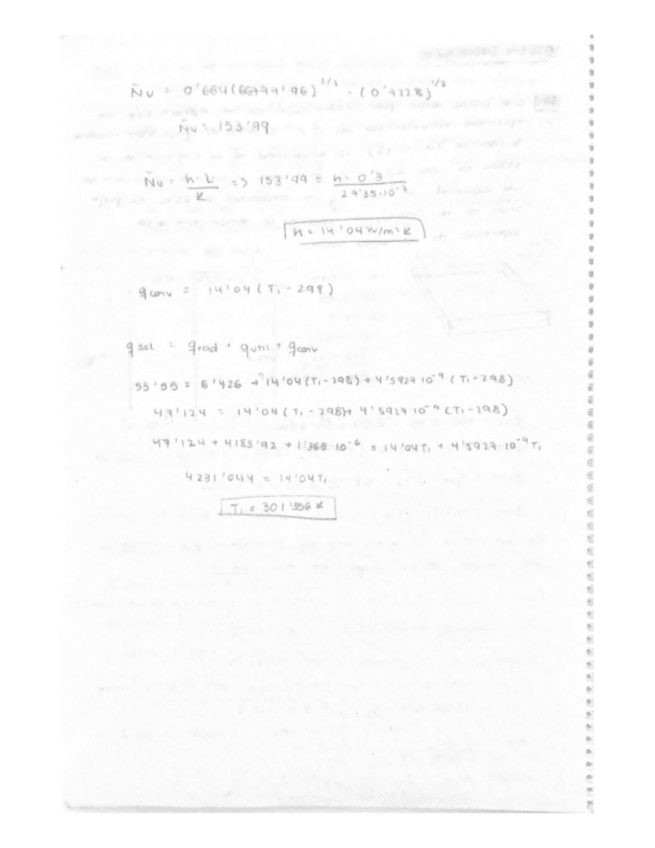 N̄u = 0'664 (66777'96)^1/2 · (0'7228)^1/3
N̄u = 153'99
N̄u = h·L / K => 153'99 = h · 0'3 / 27'35·10^-3
h = 14'04 W/m²K
q conv = 14'04 (T₁ - 298)
q sol = q rad + q util + q conv
53'55 = 6'426 + 14'04 (T₁ - 298) + 4'5927·10^-9 (T₁ - 298)
47'124 = 14'04 (T₁ - 298) + 4'5927·10^-9 (T₁ - 298)
47'124 + 4183'92 + 1'368·10^-6 = 14'04T₁ + 4'5927·10^-9 T₁
4231'044 = 14'04T₁
T₁ = 301'356 K